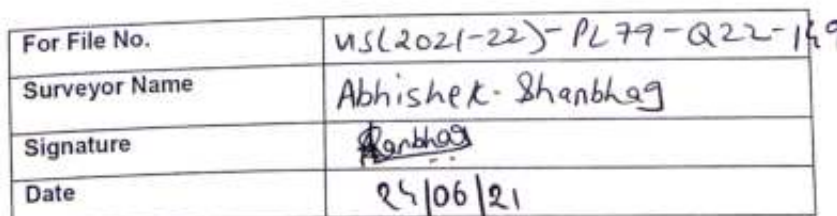 For File No. VIS(2021-22)-PL79-Q22-149
Surveyor Name Abhishek. Shanbhag
Signature Shanbhag
Date 24/06/21